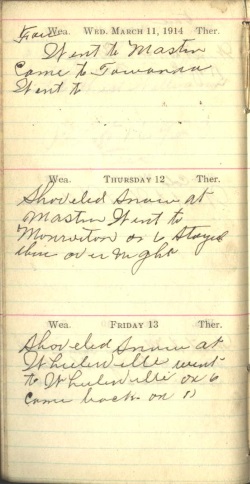 Wea. WED. MARCH 11, 1914 Ther.
Fair
Went to Masten
Came to Towanda
Went to
Wea. THURSDAY 12 Ther.
Shoveled Snow at
Masten Went to
Monroeton on 6 Stayed
over night
Wea. FRIDAY 13 Ther.
Shoveled Snow at
Wheelerville went
to Wheelerville on 6
Came back on 11